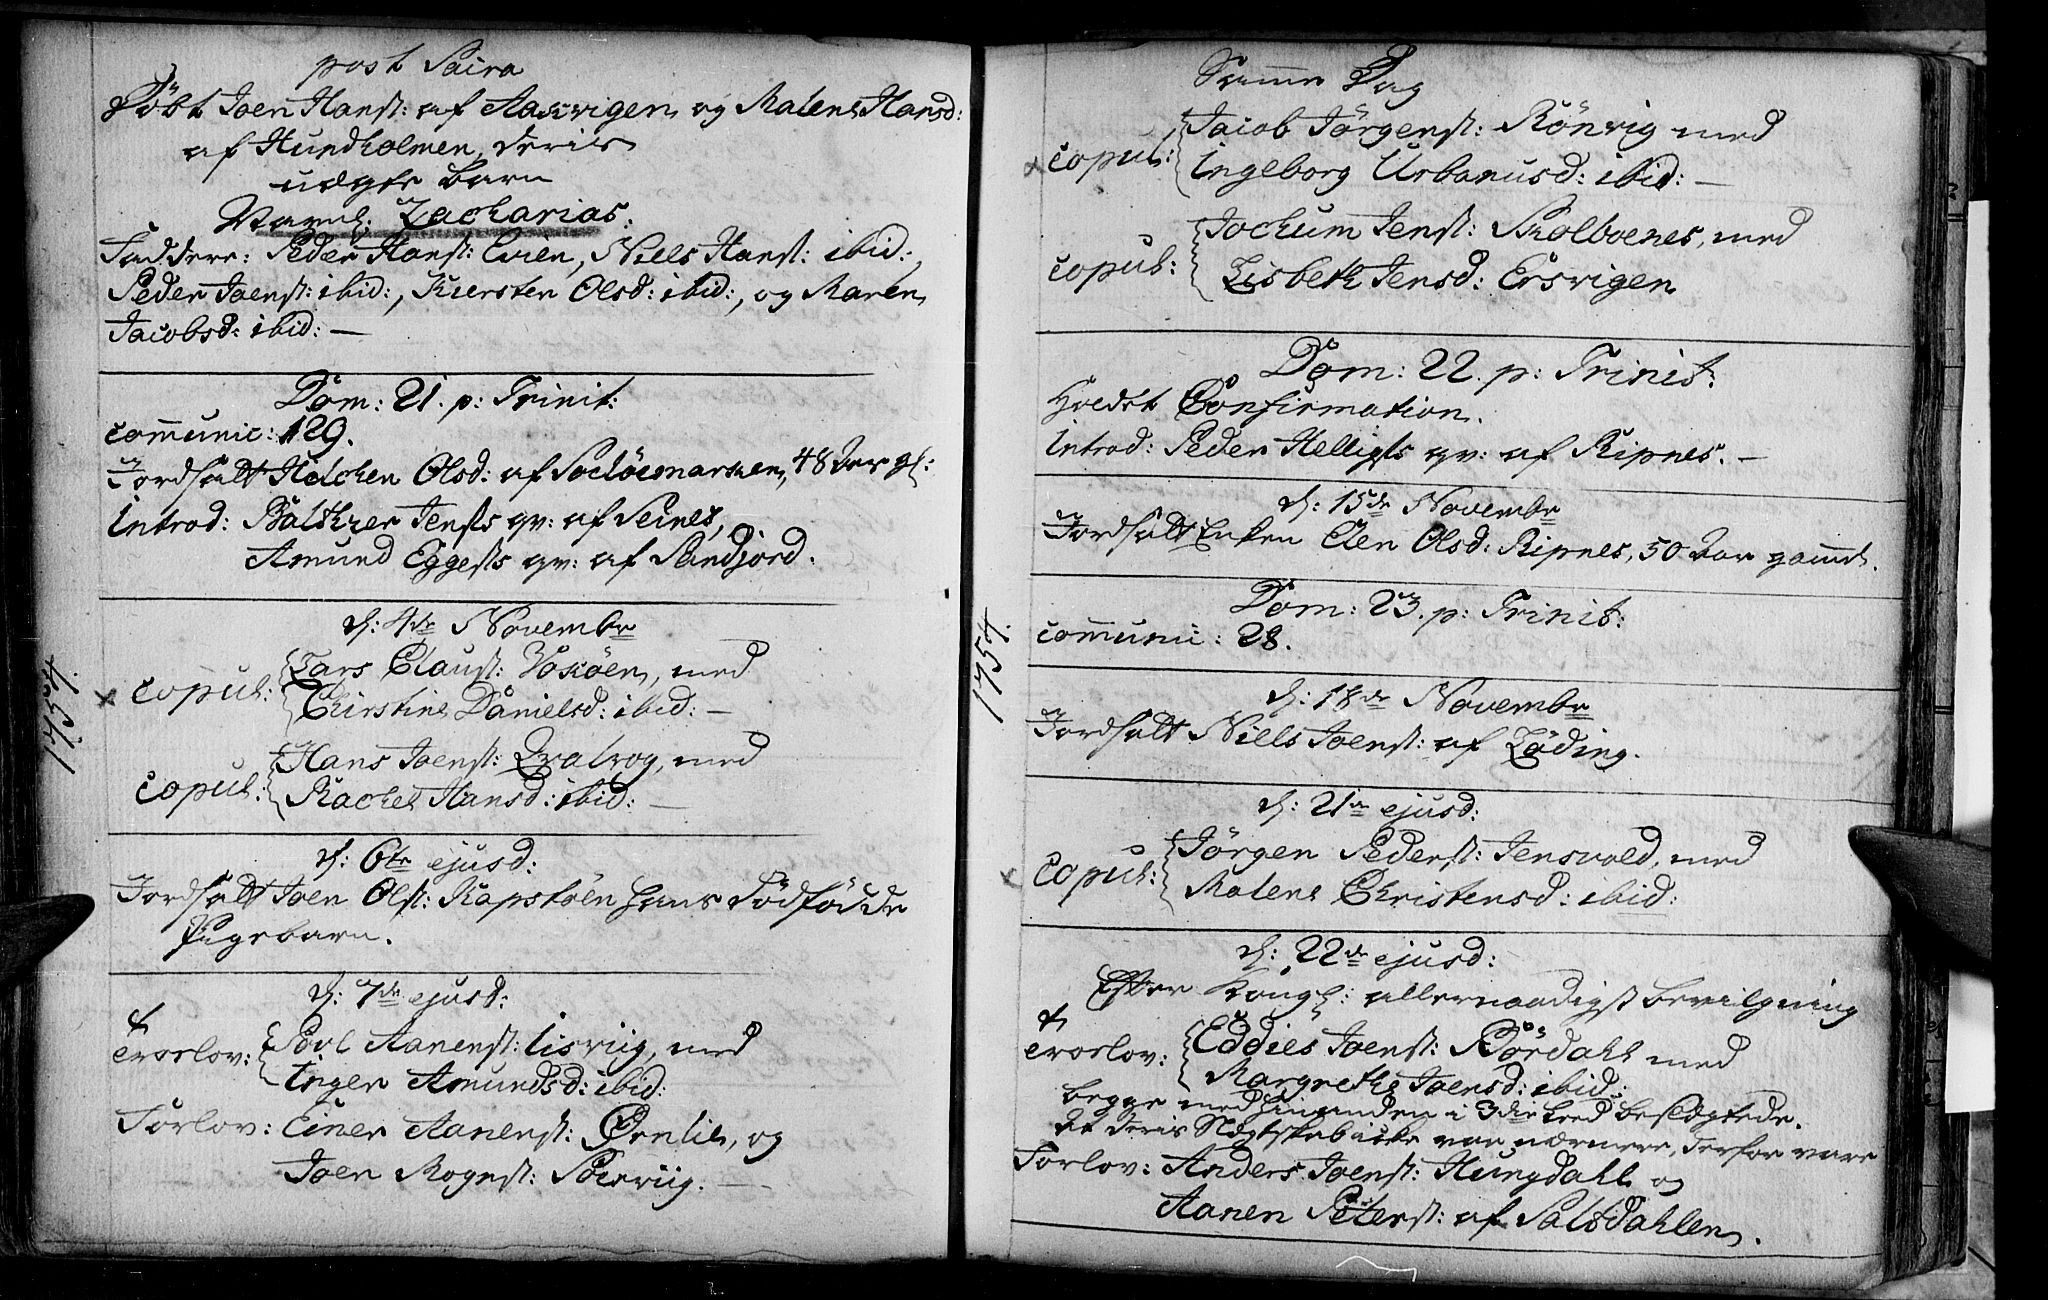 post Sacra
Döbt Joen Hansₜ: af Aasvigen og Malene Hansd:
af Hundholmen, deris
uægte barn
Navnl. Zacharias.
Faddere: Peder Hansₜ: Evien, Niels Hansₜ: ibid:,
Peder Joensₜ: ibid:, Kiersten Olsd: ibid:, og Maren
Jacobsd: ibid: —
Dom: 21. p: Trinit:
communic: 129.
Jordfæstt Halchen Olsd: af 48 Aar gl:
Introd: Baltzer Jensₜs qv: af Seines,
Amund Eggesₜs qv: af Sandjord.
1754.
d: 4de Novembr
copul: Lars Clausₜ: med
Chirstine Danielsd: ibid: —
copul: Hans Joensₜ: Qvalvog, med
Rachel Hansd: ibid: —
d: 6te ejusd:
Jordfæstt Joen Olsₜ: Kapstöen hans Dödfödde
Pigebarn.
d: 7de ejusd:
troelov: Povl Aanensₜ: Lisviig, med
Inger Amundsd: ibid:
Forlov: Einer Aanensₜ: Ørnlie, og
Joen Mognsₜ:
Samme Dag
copul: Jacob Jörgensₜ: Rönvig med
Ingeborg Urbanusd: ibid: —
copul: Jochum Jensₜ: Skolboenes, med
Lisbeth Jensd: Ersvigen
Dom: 22. p: Trinit:
Holdet Confirmation.
Introd: Peder Helligsₜs qv: af Ripnes. —
d: 15de Novembr
Jordfæstt Enken Elen Olsd: Ripnes, 50 Aar gaml.
1754.
Dom: 23. p: Trinit:
communic: 28.
d: 18de Novembr
Jordfæstt Niels Joensₜ: af Löding.
d: 21de ejusd:
copul: Jörgen Pedersₜ: Jensvold, med
Malene Christensd: ibid:
d: 22de ejusd:
Efter Kongl: allernaadigst bevilgning
troelov: Eddies Joensₜ: Rördahl med
Margrethe Joensd: ibid:
begge med hinanden i 3die Leed besægtede.
At deris Slægtskab icke var nærmere, derfor vare
Forlov: Anders Joensₜ: Hungdahl og
Aanen Petersₜ: af Saltdahlen.